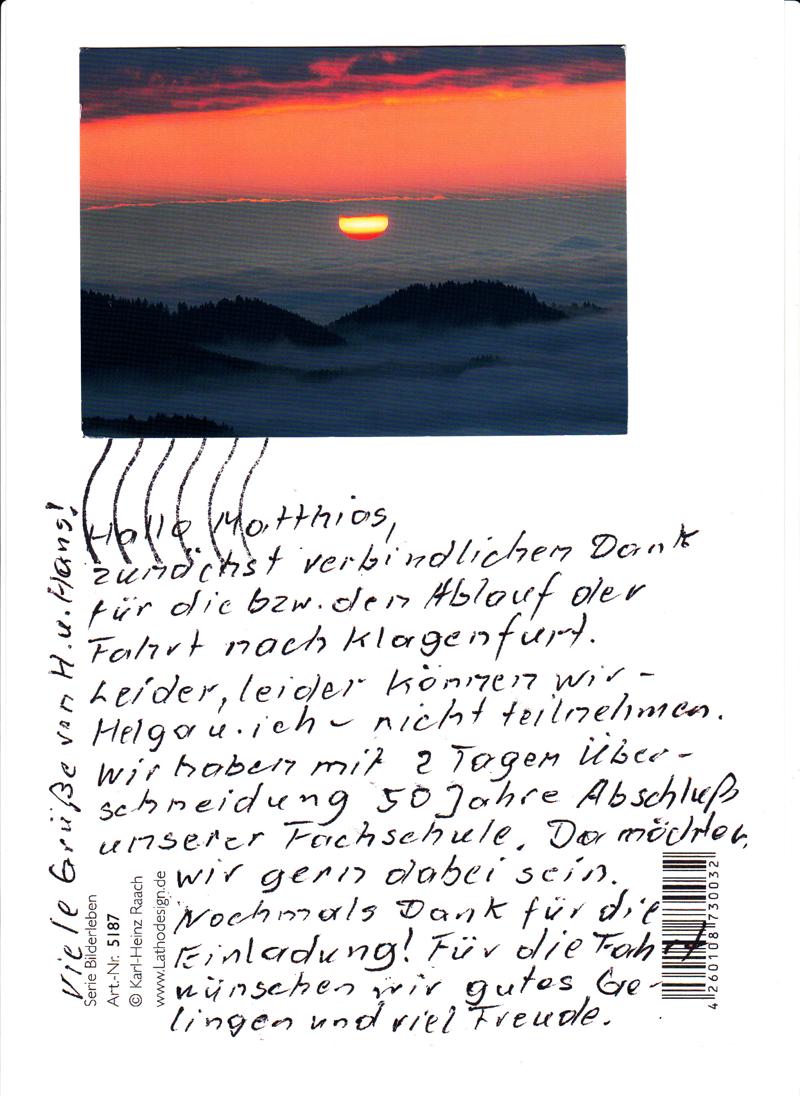 Hallo Matthias,
zunächst verbindlichen Dank
für die bzw. den Ablauf der
Fahrt nach Klagenfurt.
Leider, leider können wir -
Helga u. ich - nicht teilnehmen.
Wir haben mit 2 Tagen Über-
schneidung 50 Jahre Abschluß
unserer Fachschule. Da möchten
wir gern dabei sein.
Nochmals Dank für die
Einladung! Für die Fahrt
wünschen wir gutes Ge-
lingen und viel Freude.
Viele Grüße von H. u. Hans!
Serie Bilderleben
Art.-Nr. 5187
© Karl-Heinz Raach
www.Lathodesign.de
4 260108 730032